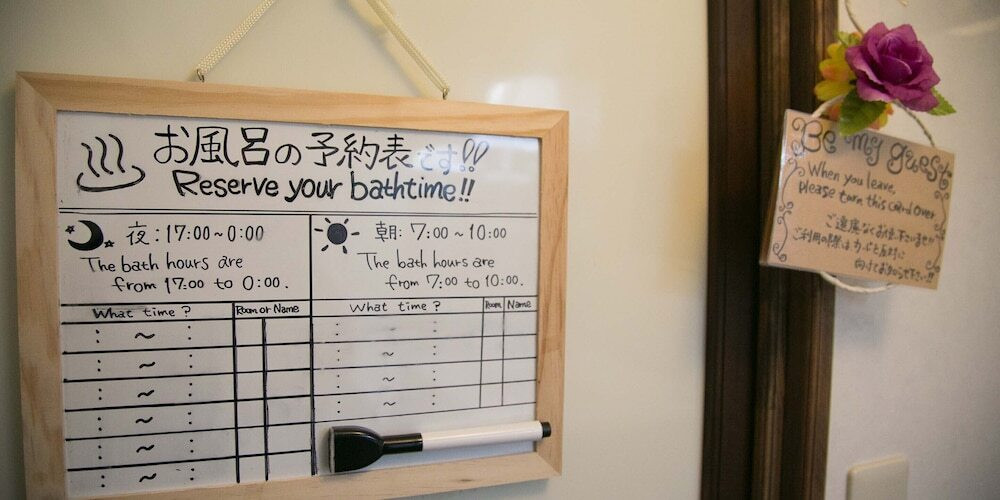 お風呂の予約表です!!
Reserve your bathtime!!
夜:17:00~0:00
The bath hours are
from 17:00 to 0:00.
朝:7:00~10:00
The bath hours are
from 7:00 to 10:00.
What time?
Room or Name
What time?
Room
Name
: ~ :
: ~ :
: ~ :
: ~ :
: ~ :
: ~ :
: ~ :
: ~ :
: ~ :
: ~ :
Be my guest
When you leave,
please turn this card over
ご遠慮なくお使い下さいませ!!
ご利用の際はカードを反対に
向けてお知らせ下さい!!